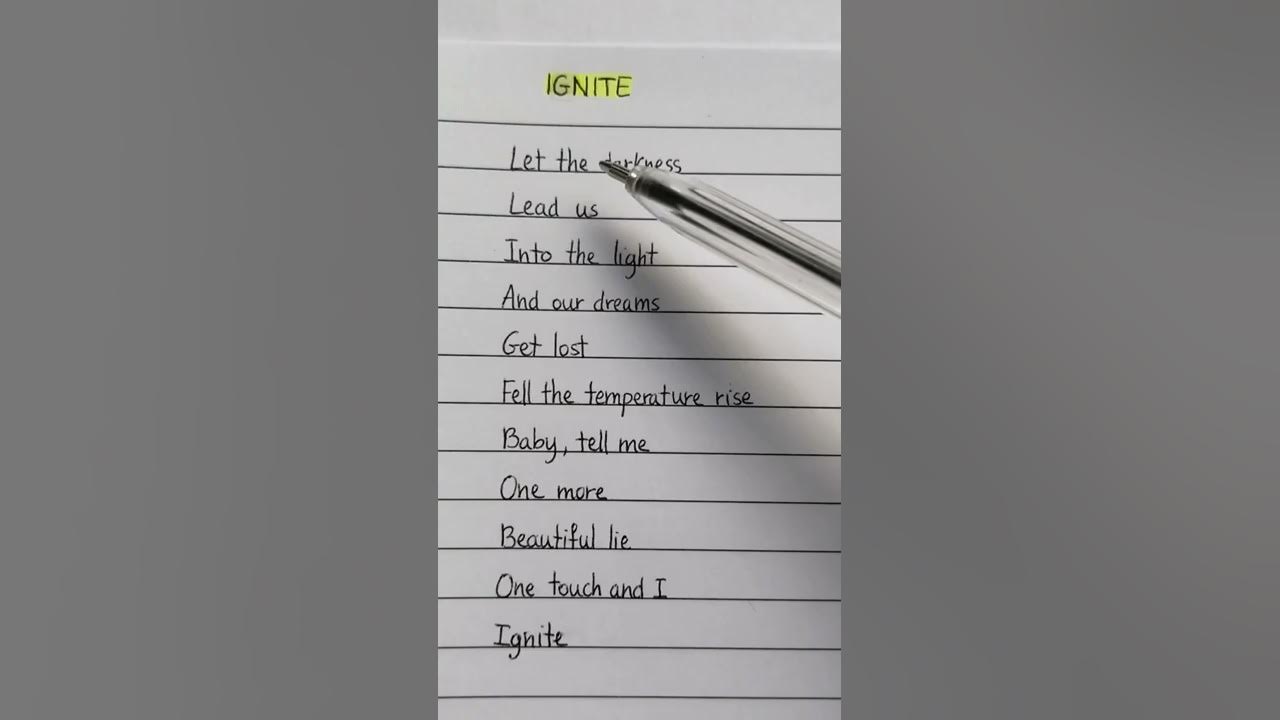 IGNITE
Let the darkness
Lead us
Into the light
And our dreams
Get lost
Fell the temperature rise
Baby, tell me
One more
Beautiful lie
One touch and I
Ignite